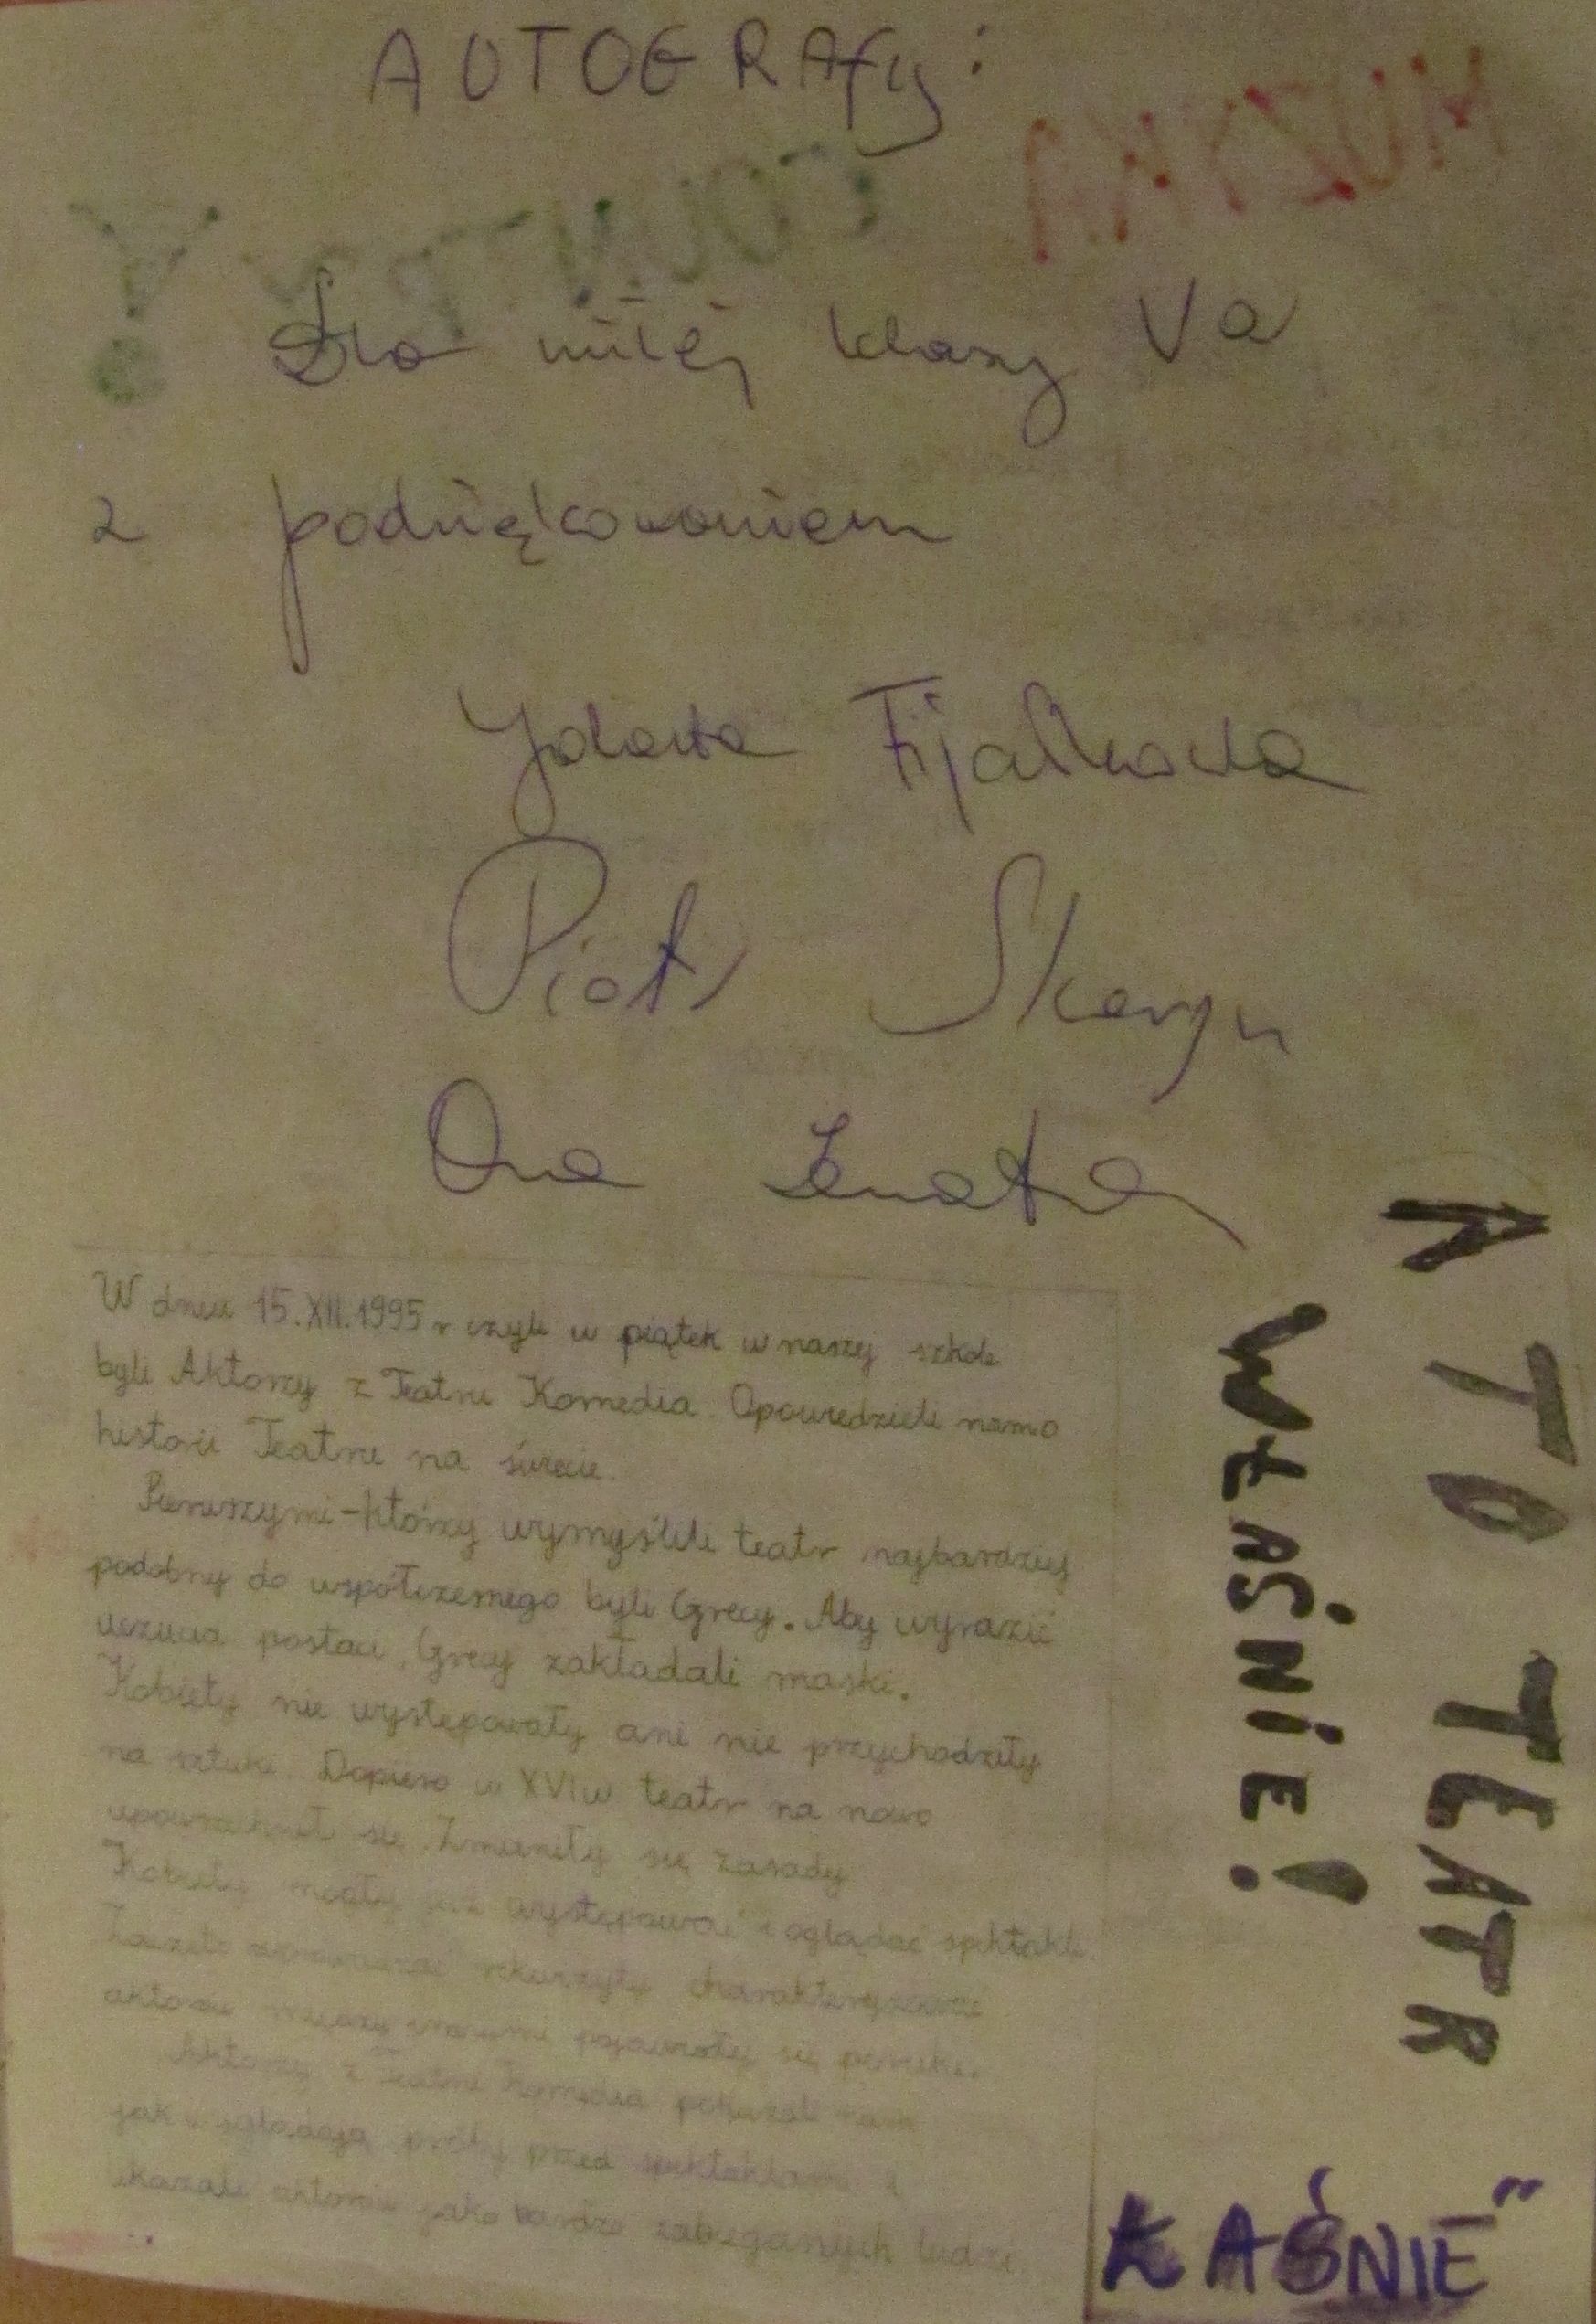 AUTOGRAfy:
MUZYKA
COUNTRY
Dla miłej klasy Va
z podziękowaniem
Jolanta Fijałkowska
Piotr Skarga
Ona
W dniu 15.XII.1995r czyli w piątek w naszej szkole
byli Aktorzy z Teatru Komedia. Opowiedzieli namo
historii Teatru na świecie.
Pierwszymi-którzy wymyślili teatr najbardziej
podobny do współczesnego byli Grecy. Aby wyrazić
uczucia postaci, Grecy zakładali maski.
Kobiety nie występowały ani nie przychodziły
na sztuki. Dopiero w XVIw teatr na nowo
upowszechnił się. Zmieniły się zasady
Kobiety mogły już występować i oglądać spektakle.
Zaczęto rekwizyty charakteryzować
aktorów między innymi pojawiały się peruki.
Aktorzy z Teatru Komedia pokazali nam
jak wyglądają próby przed spektaklami i
ukazali aktorów jako bardzo zabieganych ludzi
A TO TEATR
WŁAŚNIE!
ŁAŚNIE"